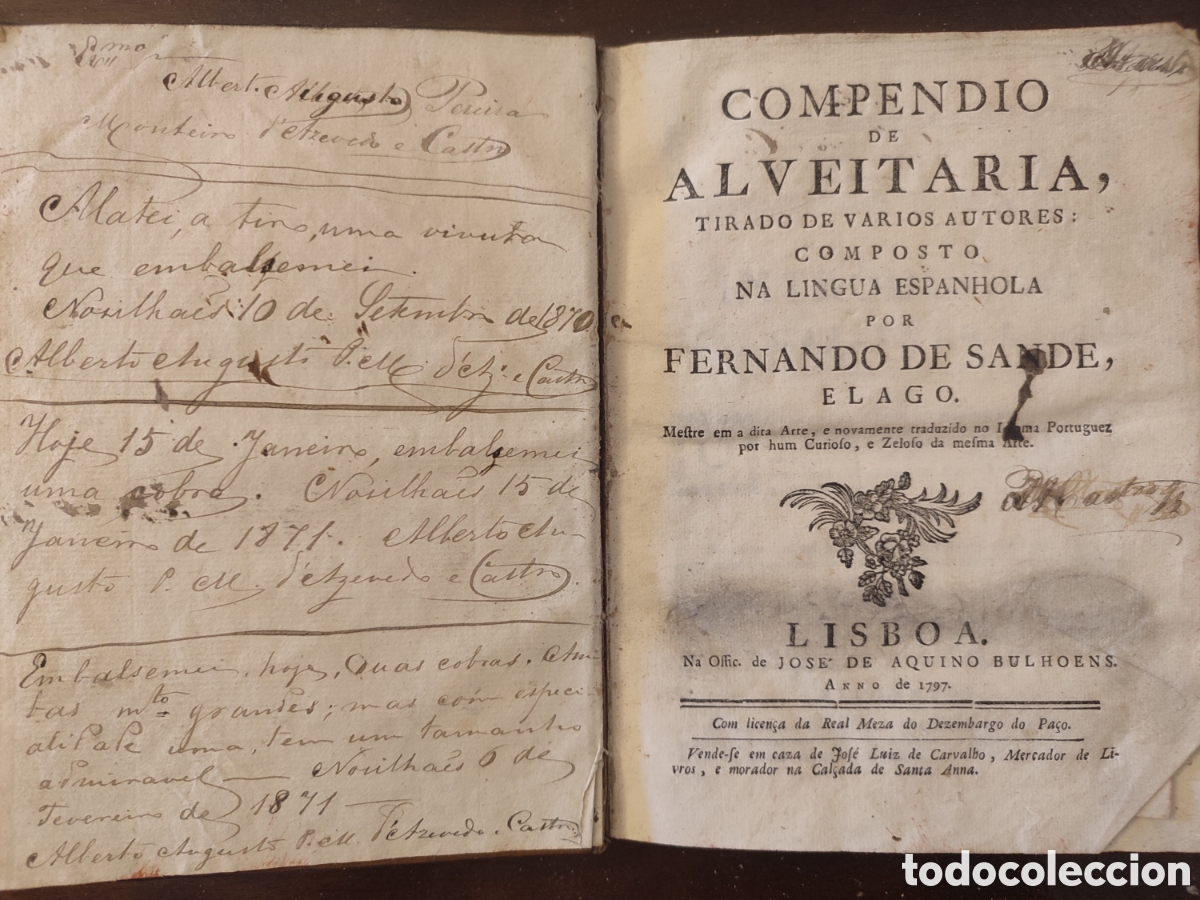 Exmo
Alberto Augusto Pereira
Monteiro d'Azevedo e Castro
Matei, a tiro, uma
que embalsemei.
Nosilhães 10 de Setembro de 1870
Alberto Augusto P. M. d'Azo. e Castro
Hoje 15 de Janeiro, embalsemei
uma cobra. Nosilhães 15 de
Janeiro de 1871. Alberto Au-
gusto P. M. d'Azevedo e Castro
Embalsemei, hoje, duas cobras. Am-
bas mto grandes; mas com especi-
alidade uma, tem um tamanho
admiravel — Nosilhães 6 de
Fevereiro de 1871 —
Alberto Augusto P. M. d'Azevedo e Castro
COMPENDIO
DE
ALVEITARIA,
TIRADO DE VARIOS AUTORES:
COMPOSTO
NA LINGUA ESPANHOLA
POR
FERNANDO DE SANDE,
E LAGO.
Meſtre em a dita Arte, e novamente traduzido no Portuguez
por hum Curioſo, e Zeloſo da meſma Arte.
Castro
LISBOA.
Na Offic. de JOSE' DE AQUINO BULHOENS.
ANNO de 1797.
Com licença da Real Meza do Dezembargo do Paço.
Vende-ſe em caza de Joſé Luiz de Carvalho, Mercador de Li-
vros, e morador na Calçada de Santa Anna.
todocoleccion